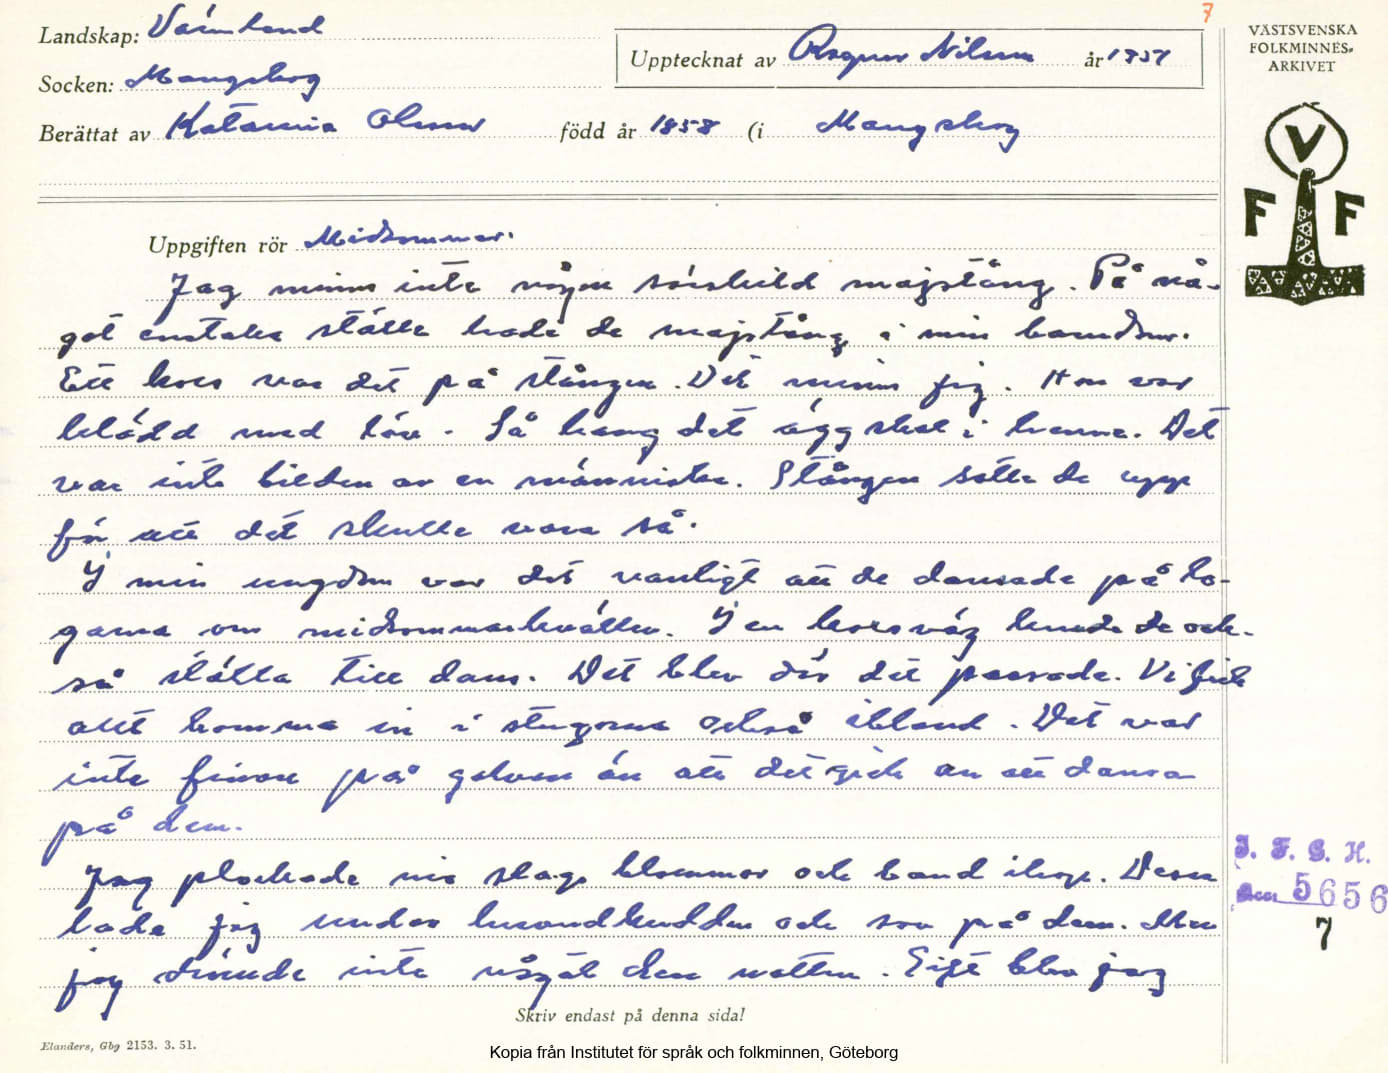 7
Landskap: Värmland
Socken: Mangskog
Berättat av Katarina Olsson född år 1858 (i Mangskog
Upptecknat av Ragnar Nilsson år 1951
VÄSTSVENSKA
FOLKMINNES-
ARKIVET
V
F F
Uppgiften rör Midsommar.
Jag minns inte någon särskild majstång. På nå-
got enstaka ställe hade de majstång i min barndom.
Ett kors var det på stången. Det minns jag. Hon var
klädd med löv. Så hang det äggskal i henne. Det
var inte bilden av en människa. Stången satte de upp
för att det skulle vara så.
I min ungdom var det vanligt att de dansade på lo-
garna om midsommarkvällen. I en korsväg kunde de ock-
så ställa till dans. Det blev där det passade. Vi fick
allt komma in i stugorna också ibland. Det var
inte finare på golven än att det gick an att dansa
på dem.
Jag plockade nio slags blommor och band ihop. Dessa
lade jag under huvudkudden och sov på dem. Men
jag drömde inte något den natten. Gift blev jag
Skriv endast på denna sida!
Elanders, Gbg 2153. 3. 51.
Kopia från Institutet för språk och folkminnen, Göteborg
I. F. G. H.
5656
7